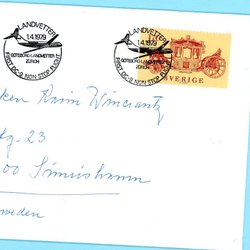 LANDVETTER
1.4.1979
GÖTEBORG-LANDVETTER
ZÜRICH
FIRST DC-9 NON STOP FLIGHT
LANDVETTER
1.4.1979
GÖTEBORG-LANDVETTER
ZÜRICH
FIRST DC-9 NON STOP FLIGHT
SVERIGE
ken Karin Wincrantz
g. 23
00 Simrishamn
weden